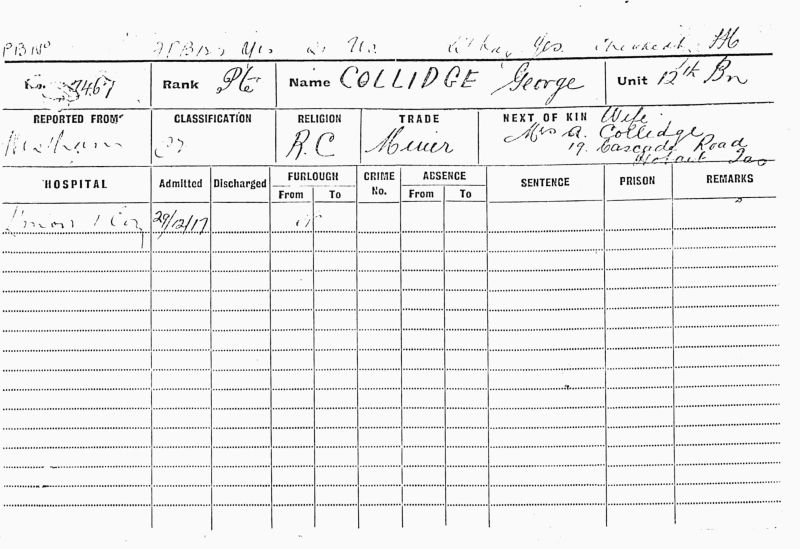 PB No Yes No Yes
No. 7467 Rank Pte Name COLLIDGE George Unit 12th Bn
REPORTED FROM CLASSIFICATION RELIGION TRADE NEXT OF KIN Wife
R.C Miner Mrs A. Collidge
19. Cascade Road
Hobart Tas
HOSPITAL Admitted Discharged FURLOUGH From To CRIME No. ABSENCE From To SENTENCE PRISON REMARKS
29/12/17